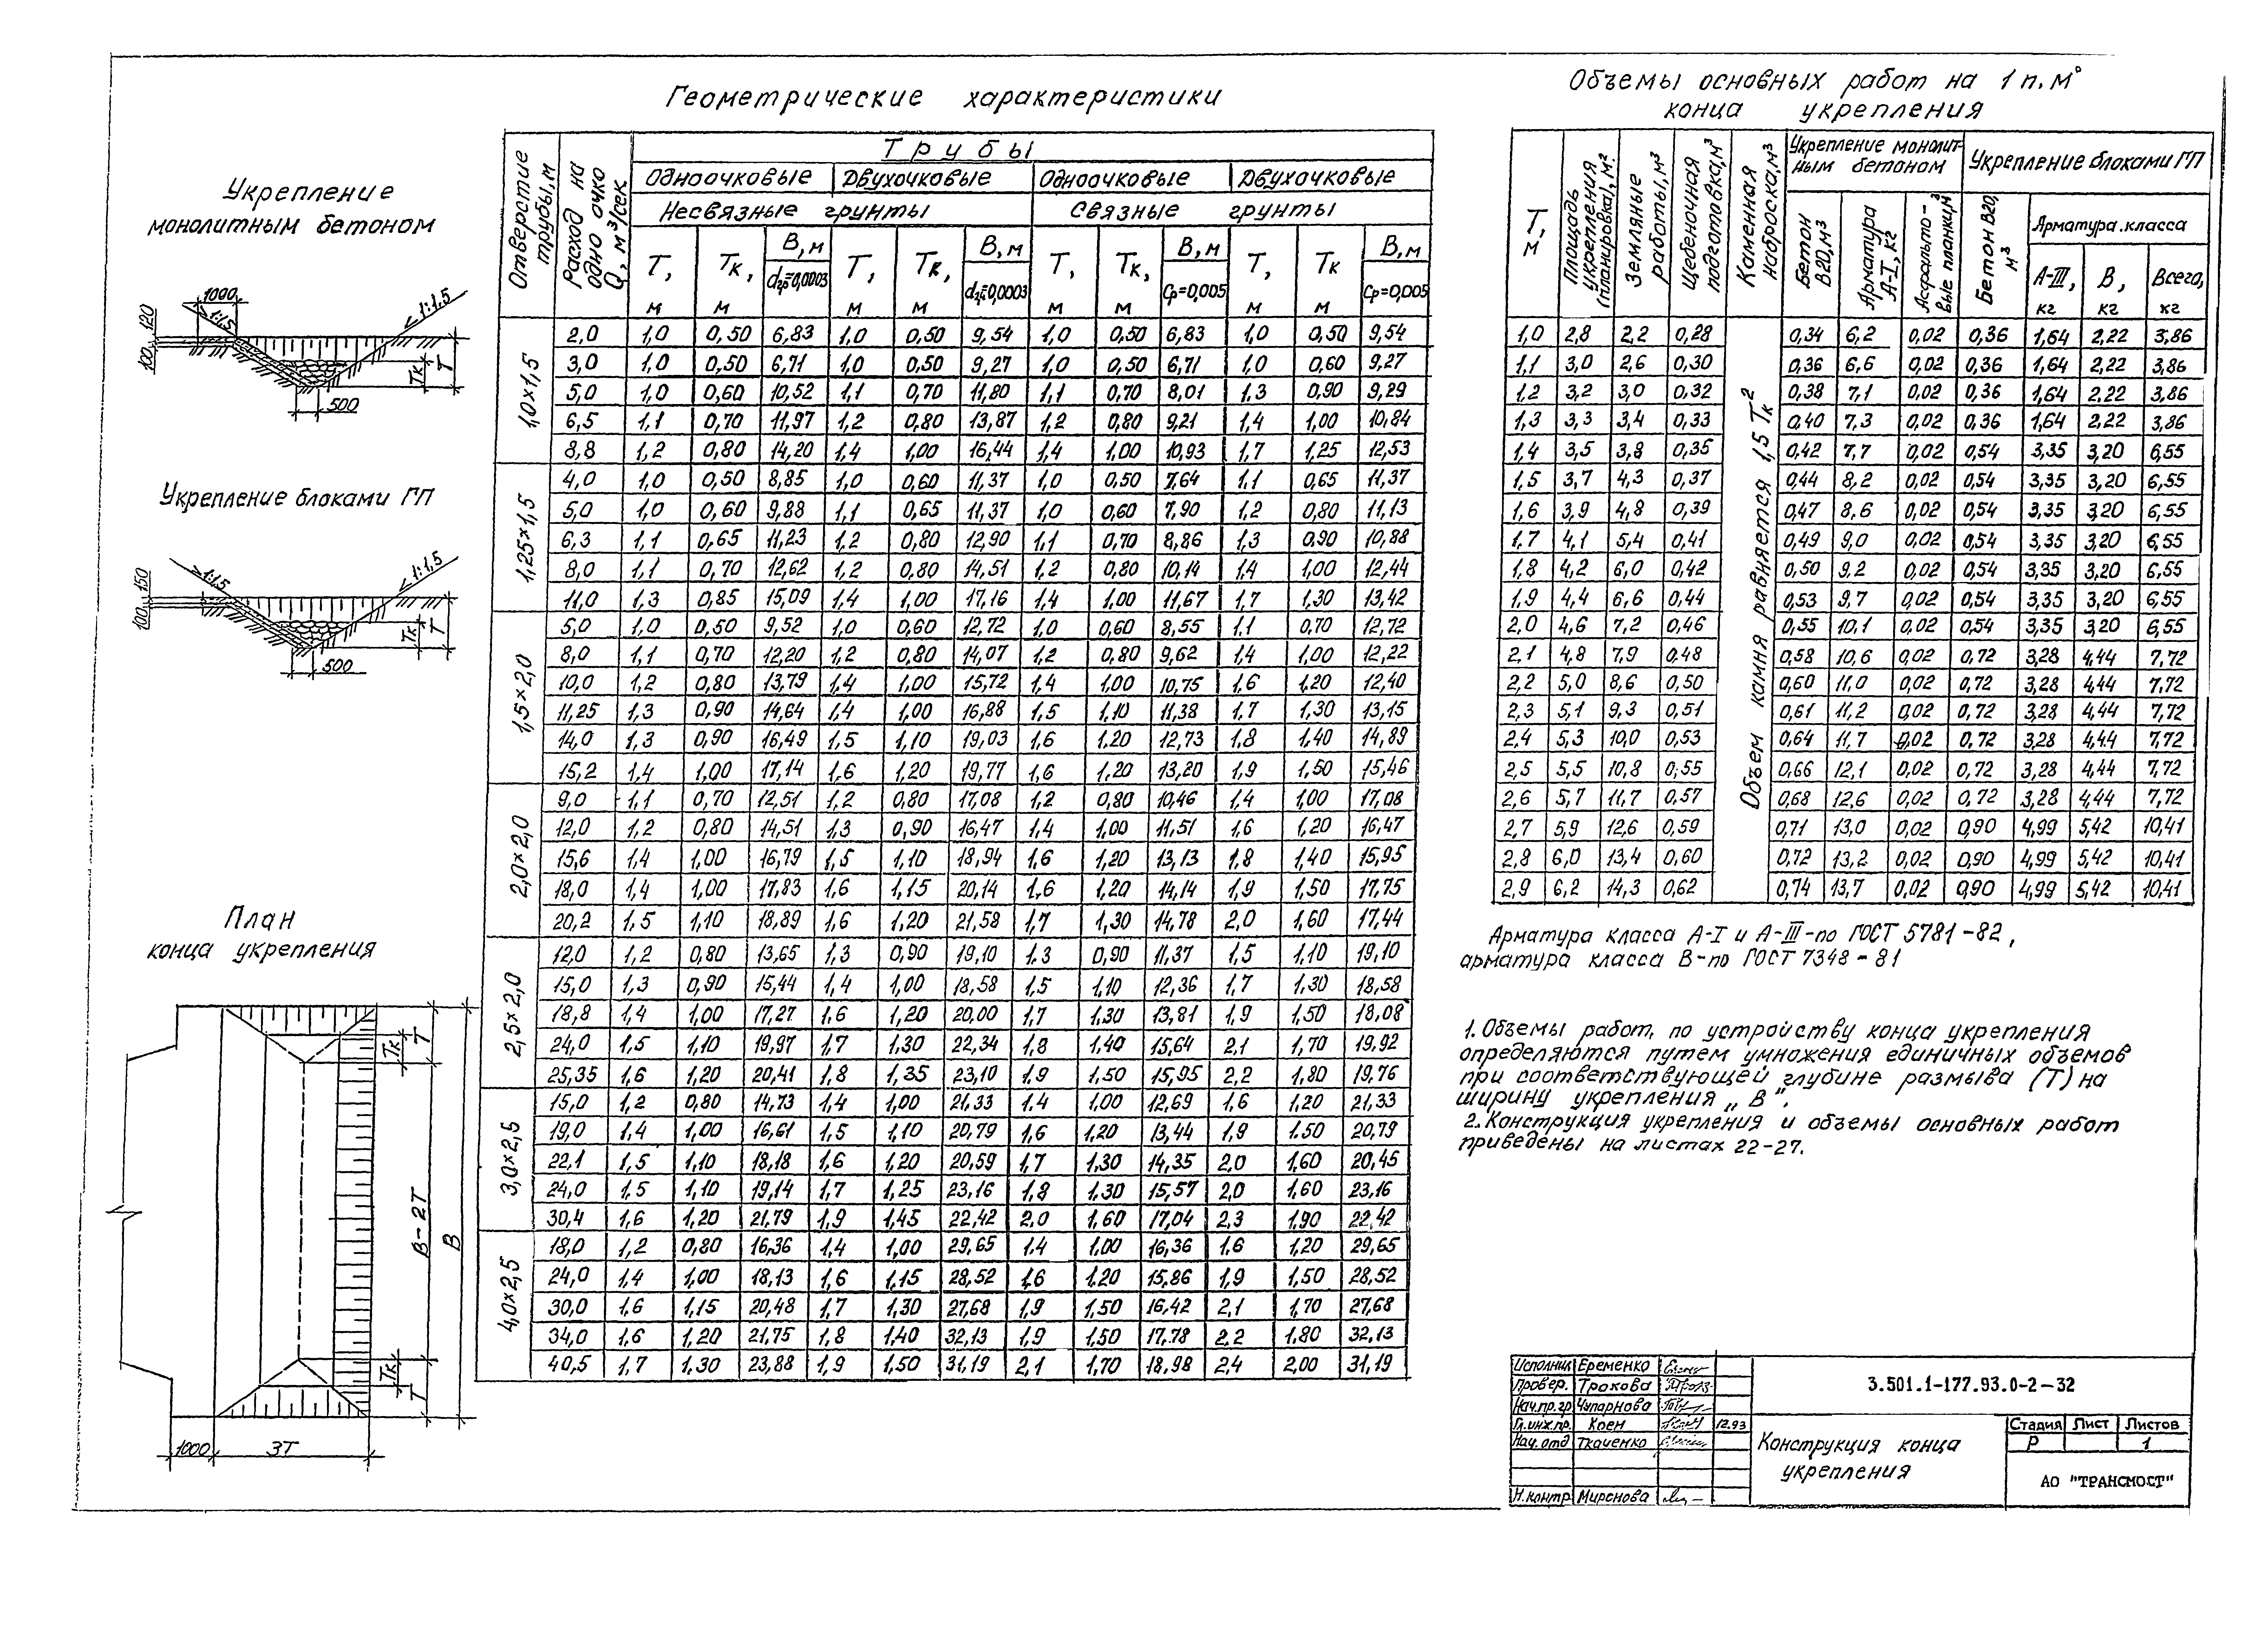 Геометрические характеристики
Объемы основных работ на 1 п.м
конца укрепления
Укрепление
монолитным бетоном
1000
1:1,5
1:1,5
120
100
Тк
Т
500
Укрепление блоками ГП
1:1,5
1:1,5
150
100
Тк
Т
500
План
конца укрепления
Тк
Т
В-2Т
В
Тк
Т
1000
3Т
Отверстие трубы, м
Расход на одно очко Q, м³/сек
Трубы
Одноочковые Двухочковые Одноочковые Двухочковые
Несвязные грунты Связные грунты
Т, м Тк, м В, м dгр=0,0003 Т, м Тк, м В, м dгр=0,0003 Т, м Тк, м В, м Ср=0,005 Т, м Тк м В, м Ср=0,005
1,0×1,5
2,0 1,0 0,50 6,83 1,0 0,50 9,54 1,0 0,50 6,83 1,0 0,50 9,54
3,0 1,0 0,50 6,71 1,0 0,50 9,27 1,0 0,50 6,71 1,0 0,60 9,27
5,0 1,0 0,60 10,52 1,1 0,70 11,80 1,1 0,70 8,01 1,3 0,90 9,29
6,5 1,1 0,70 11,97 1,2 0,80 13,87 1,2 0,80 9,21 1,4 1,00 10,84
8,8 1,2 0,80 14,20 1,4 1,00 16,44 1,4 1,00 10,93 1,7 1,25 12,53
1,25×1,5
4,0 1,0 0,50 8,85 1,0 0,60 11,37 1,0 0,50 7,64 1,1 0,65 11,37
5,0 1,0 0,60 9,88 1,1 0,65 11,37 1,0 0,60 7,90 1,2 0,80 11,13
6,3 1,1 0,65 11,23 1,2 0,80 12,90 1,1 0,70 8,86 1,3 0,90 10,88
8,0 1,1 0,70 12,62 1,2 0,80 14,51 1,2 0,80 10,14 1,4 1,00 12,44
11,0 1,3 0,85 15,09 1,4 1,00 17,16 1,4 1,00 11,67 1,7 1,30 13,42
1,5×2,0
5,0 1,0 0,50 9,52 1,0 0,60 12,72 1,0 0,60 8,55 1,1 0,70 12,72
8,0 1,1 0,70 12,20 1,2 0,80 14,07 1,2 0,80 9,62 1,4 1,00 12,22
10,0 1,2 0,80 13,79 1,4 1,00 15,72 1,4 1,00 10,75 1,6 1,20 12,40
11,25 1,3 0,90 14,64 1,4 1,00 16,88 1,5 1,10 11,38 1,7 1,30 13,15
14,0 1,3 0,90 16,49 1,5 1,10 19,03 1,6 1,20 12,73 1,8 1,40 14,89
15,2 1,4 1,00 17,14 1,6 1,20 19,77 1,6 1,20 13,20 1,9 1,50 15,46
2,0×2,0
9,0 1,1 0,70 12,51 1,2 0,80 17,08 1,2 0,80 10,46 1,4 1,00 17,08
12,0 1,2 0,80 14,51 1,3 0,90 16,47 1,4 1,00 11,51 1,6 1,20 16,47
15,6 1,4 1,00 16,79 1,5 1,10 18,94 1,6 1,20 13,13 1,8 1,40 15,95
18,0 1,4 1,00 17,83 1,6 1,15 20,14 1,6 1,20 14,14 1,9 1,50 17,75
20,2 1,5 1,10 18,89 1,6 1,20 21,58 1,7 1,30 14,78 2,0 1,60 17,44
2,5×2,0
12,0 1,2 0,80 13,65 1,3 0,90 19,10 1,3 0,90 11,37 1,5 1,10 19,10
15,0 1,3 0,90 15,44 1,4 1,00 18,58 1,5 1,10 12,36 1,7 1,30 18,58
18,8 1,4 1,00 17,27 1,6 1,20 20,00 1,7 1,30 13,81 1,9 1,50 18,08
24,0 1,5 1,10 19,97 1,7 1,30 22,34 1,8 1,40 15,64 2,1 1,70 19,92
25,35 1,6 1,20 20,41 1,8 1,35 23,10 1,9 1,50 15,95 2,2 1,80 19,76
3,0×2,5
15,0 1,2 0,80 14,73 1,4 1,00 21,33 1,4 1,00 12,69 1,6 1,20 21,33
19,0 1,4 1,00 16,61 1,5 1,10 20,79 1,6 1,20 13,44 1,9 1,50 20,79
22,1 1,5 1,10 18,18 1,6 1,20 20,59 1,7 1,30 14,35 2,0 1,60 20,45
24,0 1,5 1,10 19,14 1,7 1,25 23,16 1,8 1,30 15,57 2,0 1,60 23,16
30,4 1,6 1,20 21,79 1,9 1,45 22,42 2,0 1,60 17,04 2,3 1,90 22,42
4,0×2,5
18,0 1,2 0,80 16,36 1,4 1,00 29,65 1,4 1,00 16,36 1,6 1,20 29,65
24,0 1,4 1,00 18,13 1,6 1,15 28,52 1,6 1,20 15,86 1,9 1,50 28,52
30,0 1,6 1,15 20,48 1,7 1,30 27,68 1,9 1,50 16,42 2,1 1,70 27,68
34,0 1,6 1,20 21,75 1,8 1,40 32,13 1,9 1,50 17,78 2,2 1,80 32,13
40,5 1,7 1,30 23,88 1,9 1,50 31,19 2,1 1,70 18,98 2,4 2,00 31,19
Т, м
Площадь укрепления (планировка), м²
Земляные работы, м³
Щебеночная подготовка, м³
Каменная наброска, м³
Укрепление монолитным бетоном
Бетон В20, м³
Арматура А-I, кг
Асфальтовые планки м³
Укрепление блоками ГП
Бетон В20, м³
Арматура класса
А-III, кг В, кг Всего, кг
Объем камня равняется 1,5 Тк²
1,0 2,8 2,2 0,28 0,34 6,2 0,02 0,36 1,64 2,22 3,86
1,1 3,0 2,6 0,30 0,36 6,6 0,02 0,36 1,64 2,22 3,86
1,2 3,2 3,0 0,32 0,38 7,1 0,02 0,36 1,64 2,22 3,86
1,3 3,3 3,4 0,33 0,40 7,3 0,02 0,36 1,64 2,22 3,86
1,4 3,5 3,8 0,35 0,42 7,7 0,02 0,54 3,35 3,20 6,55
1,5 3,7 4,3 0,37 0,44 8,2 0,02 0,54 3,35 3,20 6,55
1,6 3,9 4,8 0,39 0,47 8,6 0,02 0,54 3,35 3,20 6,55
1,7 4,1 5,4 0,41 0,49 9,0 0,02 0,54 3,35 3,20 6,55
1,8 4,2 6,0 0,42 0,50 9,2 0,02 0,54 3,35 3,20 6,55
1,9 4,4 6,6 0,44 0,53 9,7 0,02 0,54 3,35 3,20 6,55
2,0 4,6 7,2 0,46 0,55 10,1 0,02 0,54 3,35 3,20 6,55
2,1 4,8 7,9 0,48 0,58 10,6 0,02 0,72 3,28 4,44 7,72
2,2 5,0 8,6 0,50 0,60 11,0 0,02 0,72 3,28 4,44 7,72
2,3 5,1 9,3 0,51 0,61 11,2 0,02 0,72 3,28 4,44 7,72
2,4 5,3 10,0 0,53 0,64 11,7 0,02 0,72 3,28 4,44 7,72
2,5 5,5 10,8 0,55 0,66 12,1 0,02 0,72 3,28 4,44 7,72
2,6 5,7 11,7 0,57 0,68 12,6 0,02 0,72 3,28 4,44 7,72
2,7 5,9 12,6 0,59 0,71 13,0 0,02 0,90 4,99 5,42 10,41
2,8 6,0 13,4 0,60 0,72 13,2 0,02 0,90 4,99 5,42 10,41
2,9 6,2 14,3 0,62 0,74 13,7 0,02 0,90 4,99 5,42 10,41
Арматура класса А-I и А-III-по ГОСТ 5781-82,
арматура класса В-по ГОСТ 7348-81
1. Объемы работ, по устройству конца укрепления
определяются путем умножения единичных объемов
при соответствующей глубине размыва (Т) на
ширину укрепления „В".
2. Конструкция укрепления и объемы основных работ
приведены на листах 22-27.
Исполнил Еременко
Провер. Трокова
Нач.пр.гр Чупарнова
Гл.инж.пр. Коен 12.93
Нач.отд Ткаченко
Н.контр Миронова
3.501.1-177.93.0-2-32
Конструкция конца
укрепления
Стадия Лист Листов
Р 1
АО "ТРАНСМОСТ"